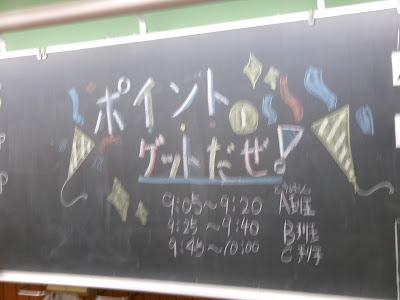 ポイント
ゲットだぜ!
9:05～9:20 A班
9:25～9:40 B班
9:45～10:00 C班